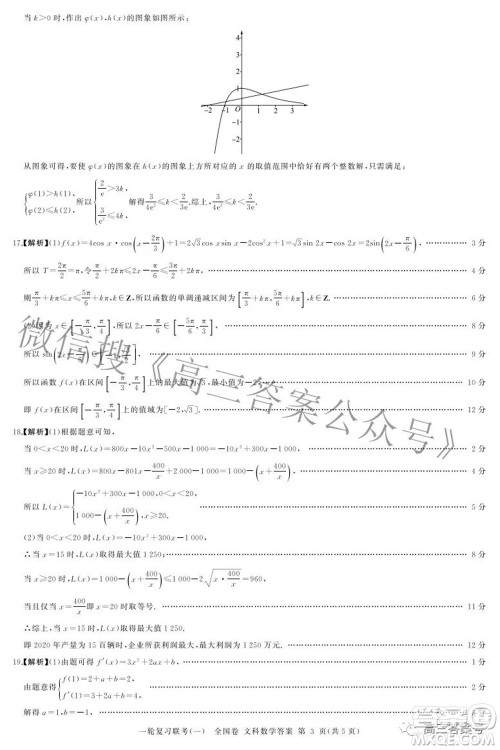 当k>0时,作出φ(x),h(x)的图象如图所示:
4
3
2
1
-2 -1 O 1 2 3 4 x
-1
-2
从图象可得,要使φ(x)的图象在h(x)的图象上方所对应的x的取值范围中恰好有两个整数解,只需满足:
{φ(1)>h(1), φ(2)≤h(2), 所以{2/e>3k, 3/e²≤4k, 解得3/4e²≤k<2/3e.综上,3/4e²≤k<2/3e.
17.【解析】(1)f(x)=4cos x·cos(x-2π/3)+1=2√3cos xsin x-2cos²x+1=√3sin 2x-cos 2x=2sin(2x-π/6), 3分
所以T=2π/2=π,令π/2+2kπ≤2x-π/6≤3π/2+2kπ,k∈Z, 4分
则π/3+kπ≤x≤5π/6+kπ,k∈Z,所以函数的单调递减区间为[π/3+kπ,5π/6+kπ],k∈Z. 6分
(2)因为x∈[-π/3,π/4],所以2x-π/6∈[-5π/6,π/3], 8分
所以sin(2x-π/6)∈ 9分
所以函数f(x)在区间[-π/3,π/4]上的最大值为√3,最小值为-2, 11分
即f(x)在区间[-π/3,π/4]上的值域为[-2,√3]. 12分
18.【解析】(1)根据题意可知,
当0<x<20时,L(x)=800x-10x²-500x-1 000=-10x²+300x-1 000, 2分
当x≥20时,L(x)=800x-801x-400/x+2 000-1 000=1 000-(x+400/x), 4分
所以L(x)={-10x²+300x-1 000,0<x<20, 1 000-(x+400/x),x≥20. 5分
(2)当0<x<20时,L(x)=-10x²+300x-1 000,
∴当x=15时,L(x)取得最大值1 250; 8分
当x≥20时,L(x)=1 000-(x+400/x)≤1 000-2√(x·400/x)=960,
当且仅当x=400/x即x=20时取等号. 11分
∴综上,当x=15时,L(x)取得最大值1 250.
即2020年产量为15百辆时,企业所获利润最大,最大利润为1 250万元. 12分
19.【解析】(1)由题可得f′(x)=3x²+2ax+b, 1分
由题意得{f′(2)=12+4a+b=0, f′(1)=3+2a+b=0, 4分
一轮复习联考(一) 全国卷 文科数学答案 第 3 页(共5页)
微信搜《高三答案公众号》
高三答案公众号